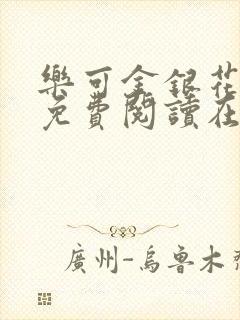 樂可金銀花
免費閱讀在
廣州-烏魯木齊